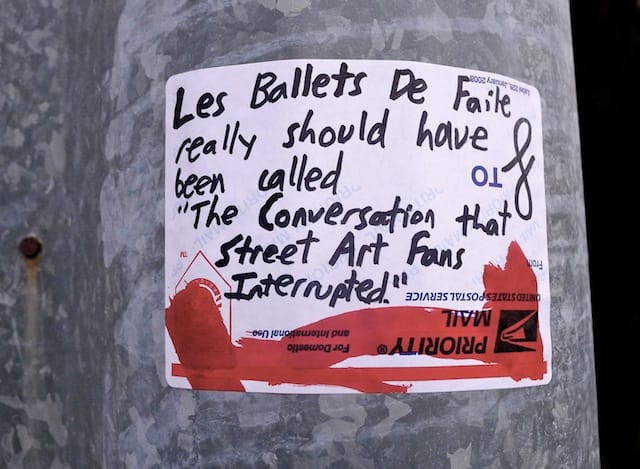 Les Ballets De Faile
really should have
been called
"The Conversation that
Street Art Fans
Interrupted."
Label 228, January 2008
TO
From
UNITED STATES POSTAL SERVICE
PRIORITY®
MAIL
For Domestic
and International Use
TM